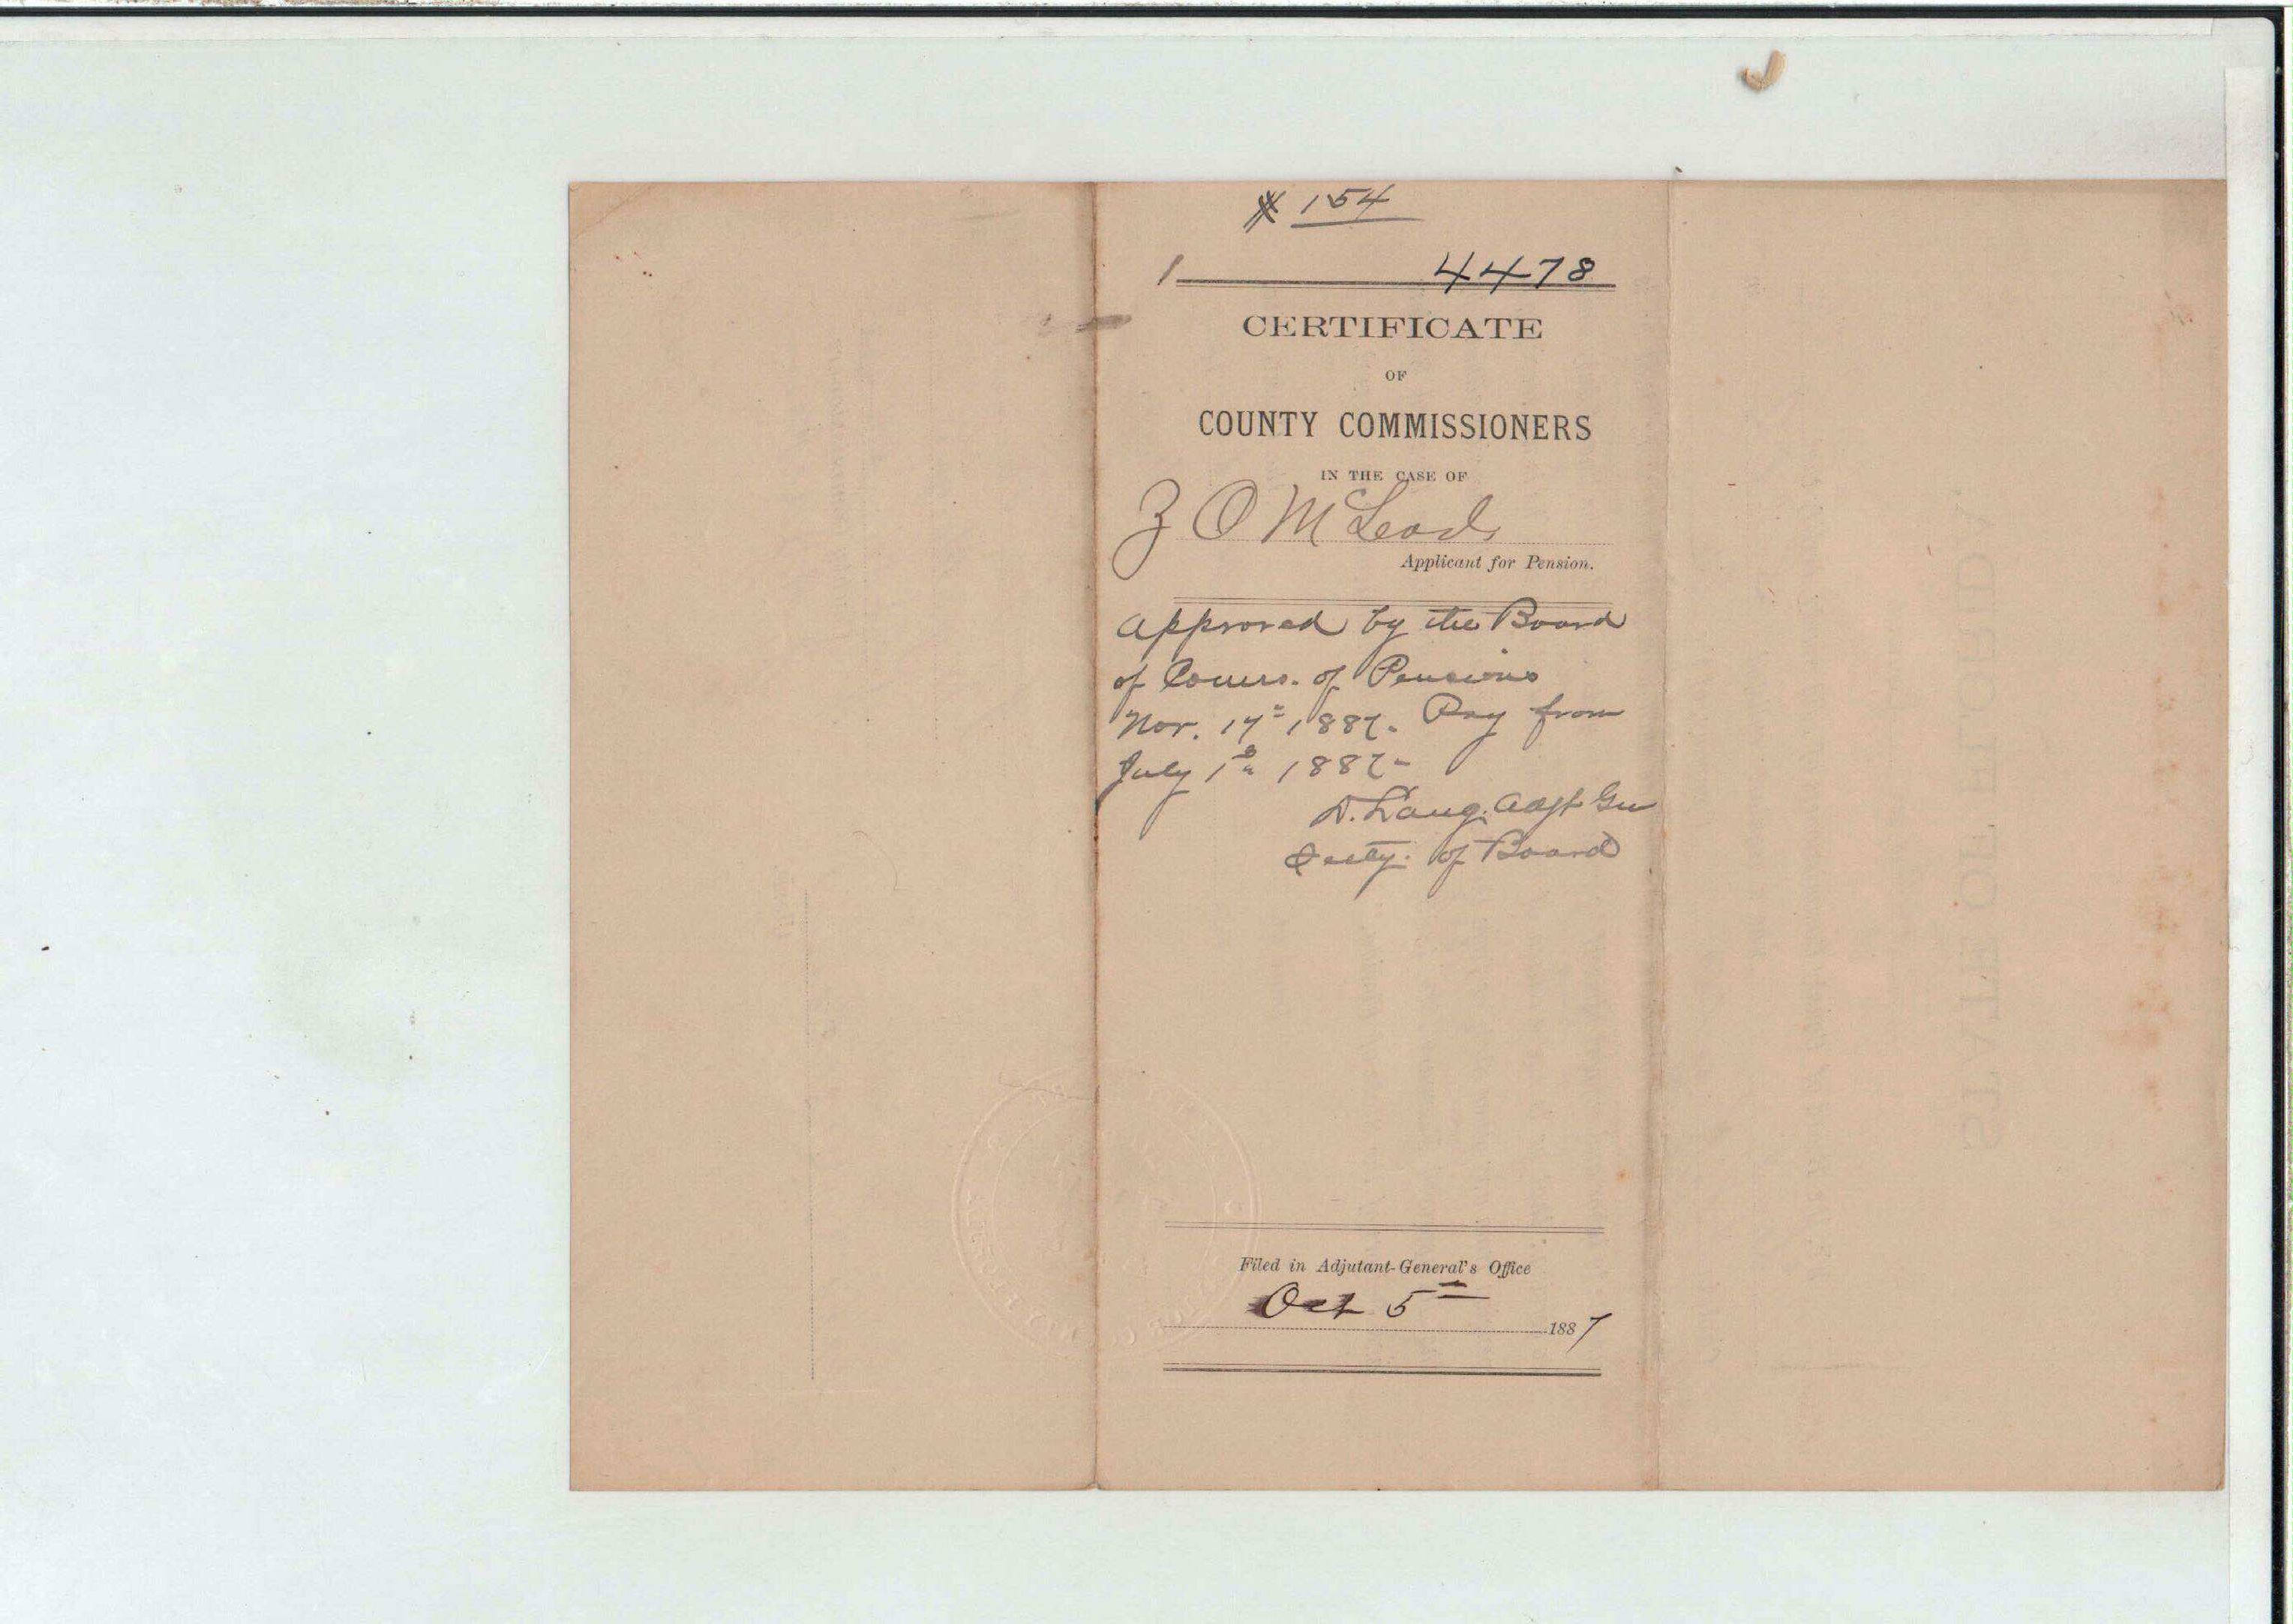 # 154
1 4478
CERTIFICATE
OF
COUNTY COMMISSIONERS
IN THE CASE OF
Z O McLeod
Applicant for Pension.
Approved by the Board
of Comrs. of Pensions
Nov. 17" 1887. Pay from
July 1st 1887-
D. Lang. Adjt Gen
Secty. of Board
Filed in Adjutant-General's Office
Oct 5= 1887